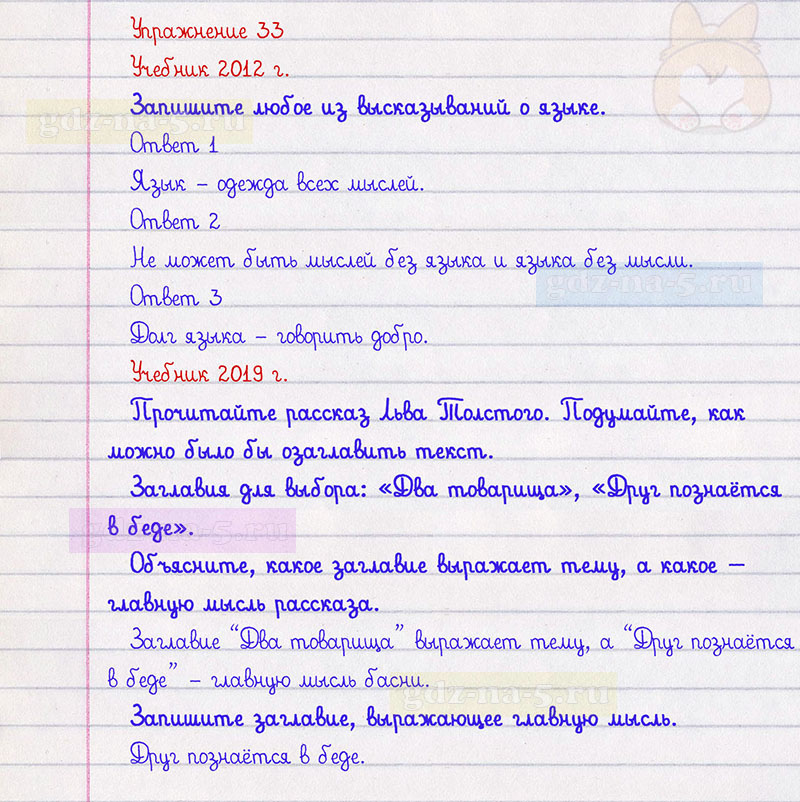 Упражнение 33
Учебник 2012 г.
Запишите любое из высказываний о языке.
gdz-na-5.ru
Ответ 1
Язык – одежда всех мыслей.
Ответ 2
Не может быть мыслей без языка и языка без мысли.
gdz-na-5.ru
Ответ 3
Долг языка – говорить добро.
Учебник 2019 г.
Прочитайте рассказ Льва Толстого. Подумайте, как
можно было бы озаглавить текст.
Заглавия для выбора: «Два товарища», «Друг познаётся
в беде».
gdz-na-5.ru
Объясните, какое заглавие выражает тему, а какое –
главную мысль рассказа.
Заглавие “Два товарища” выражает тему, а “Друг познаётся
в беде” – главную мысль басни.
gdz-na-5.ru
Запишите заглавие, выражающее главную мысль.
Друг познаётся в беде.